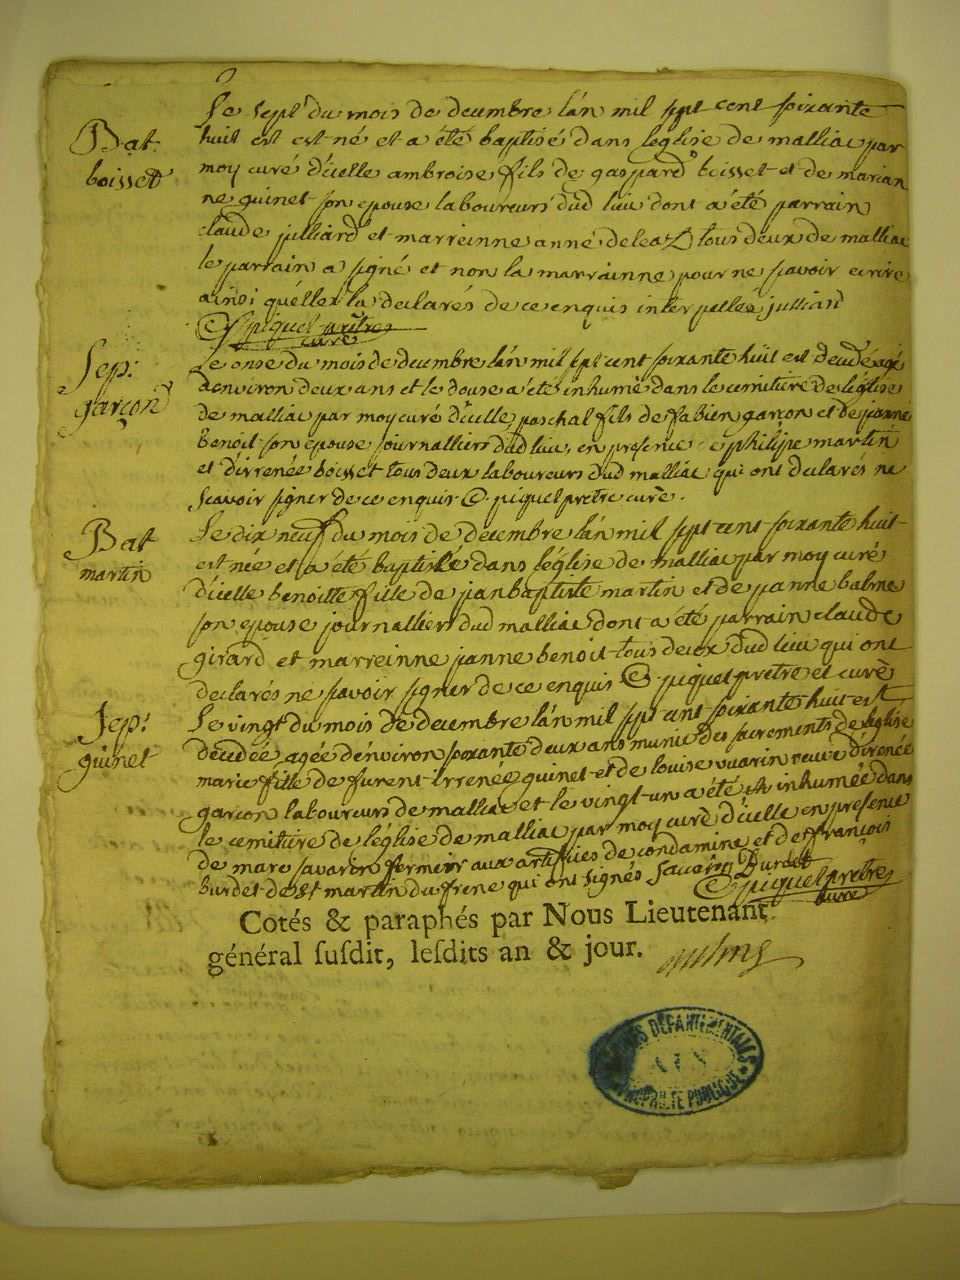 Bat:
boisset
Le sept du mois de decembre lán mil sept cent soixante
huit est né et a été baptisé dans leglise de malliac par
moy curé dicelle ambroise fils de gaspard boisset et de marian
ne guinet son epouse laboureurs dud lieu dont a été parrain
claude julliard et marreinne anné tous deux de malliac
le parrain a signé et non la marrainne pour ne savoir ecrire
ainsi quélle la declarés de ce enquis interpellés julliard
piquet prêtre
curé
Sep:
garçon
Le onse du mois de decembre lán mil sept cent soixante huit est decedé agé
denviron deux ans et le douse a été inhumé dans le cemitiere de léglise
de malliac par moy curé dicelle paschal fils de fabien garçon et de janne
benoit son epouse journalliers dud lieu, en presence philipe martin
et dirrenée boisset tous deux laboureurs dud malliac qui ont declarés ne
scavoir signer de ce enquis piquet pretre curé.
Bat
martin
Le dix neuf du mois de decembre lán mil sept cent soixante huit
est née et a été baptisée dans léglise de malliac par moy curé
dicelle benoitte fille de janbaptiste martin et de janne balme
son epouse journalliers dud malliac dont a été parrain claude
girard et marreinne janne benoit tous deux dud lieu qui ont
declarés ne savoir signer de ce enquis piquet pretre et curé
Sep:
guinet
Le vingt du mois de decembre lán mil sept cent soixante huit est
decedée agée denviron soixante deux ans munie des sacrements de léglise
marie fille de furent irrenée guinet et de louise vuarin veuve direnée
garçon laboureurs de malliac et le vingt-un a été inhumée dans
le cemitiere de léglise de malliac par moy curé dicelle en presence
de marc savarin fermier aux de condamine et de françois
burdet de st martin du frene qui ont signés Savarin Burdet
piquet pretre
curé
Cotés & paraphés par Nous Lieutenant
général ſuſdit, leſdits an & jour.
DÉPARTEMENTALES
AIN
PROPRIÉTÉ PUBLIQUE